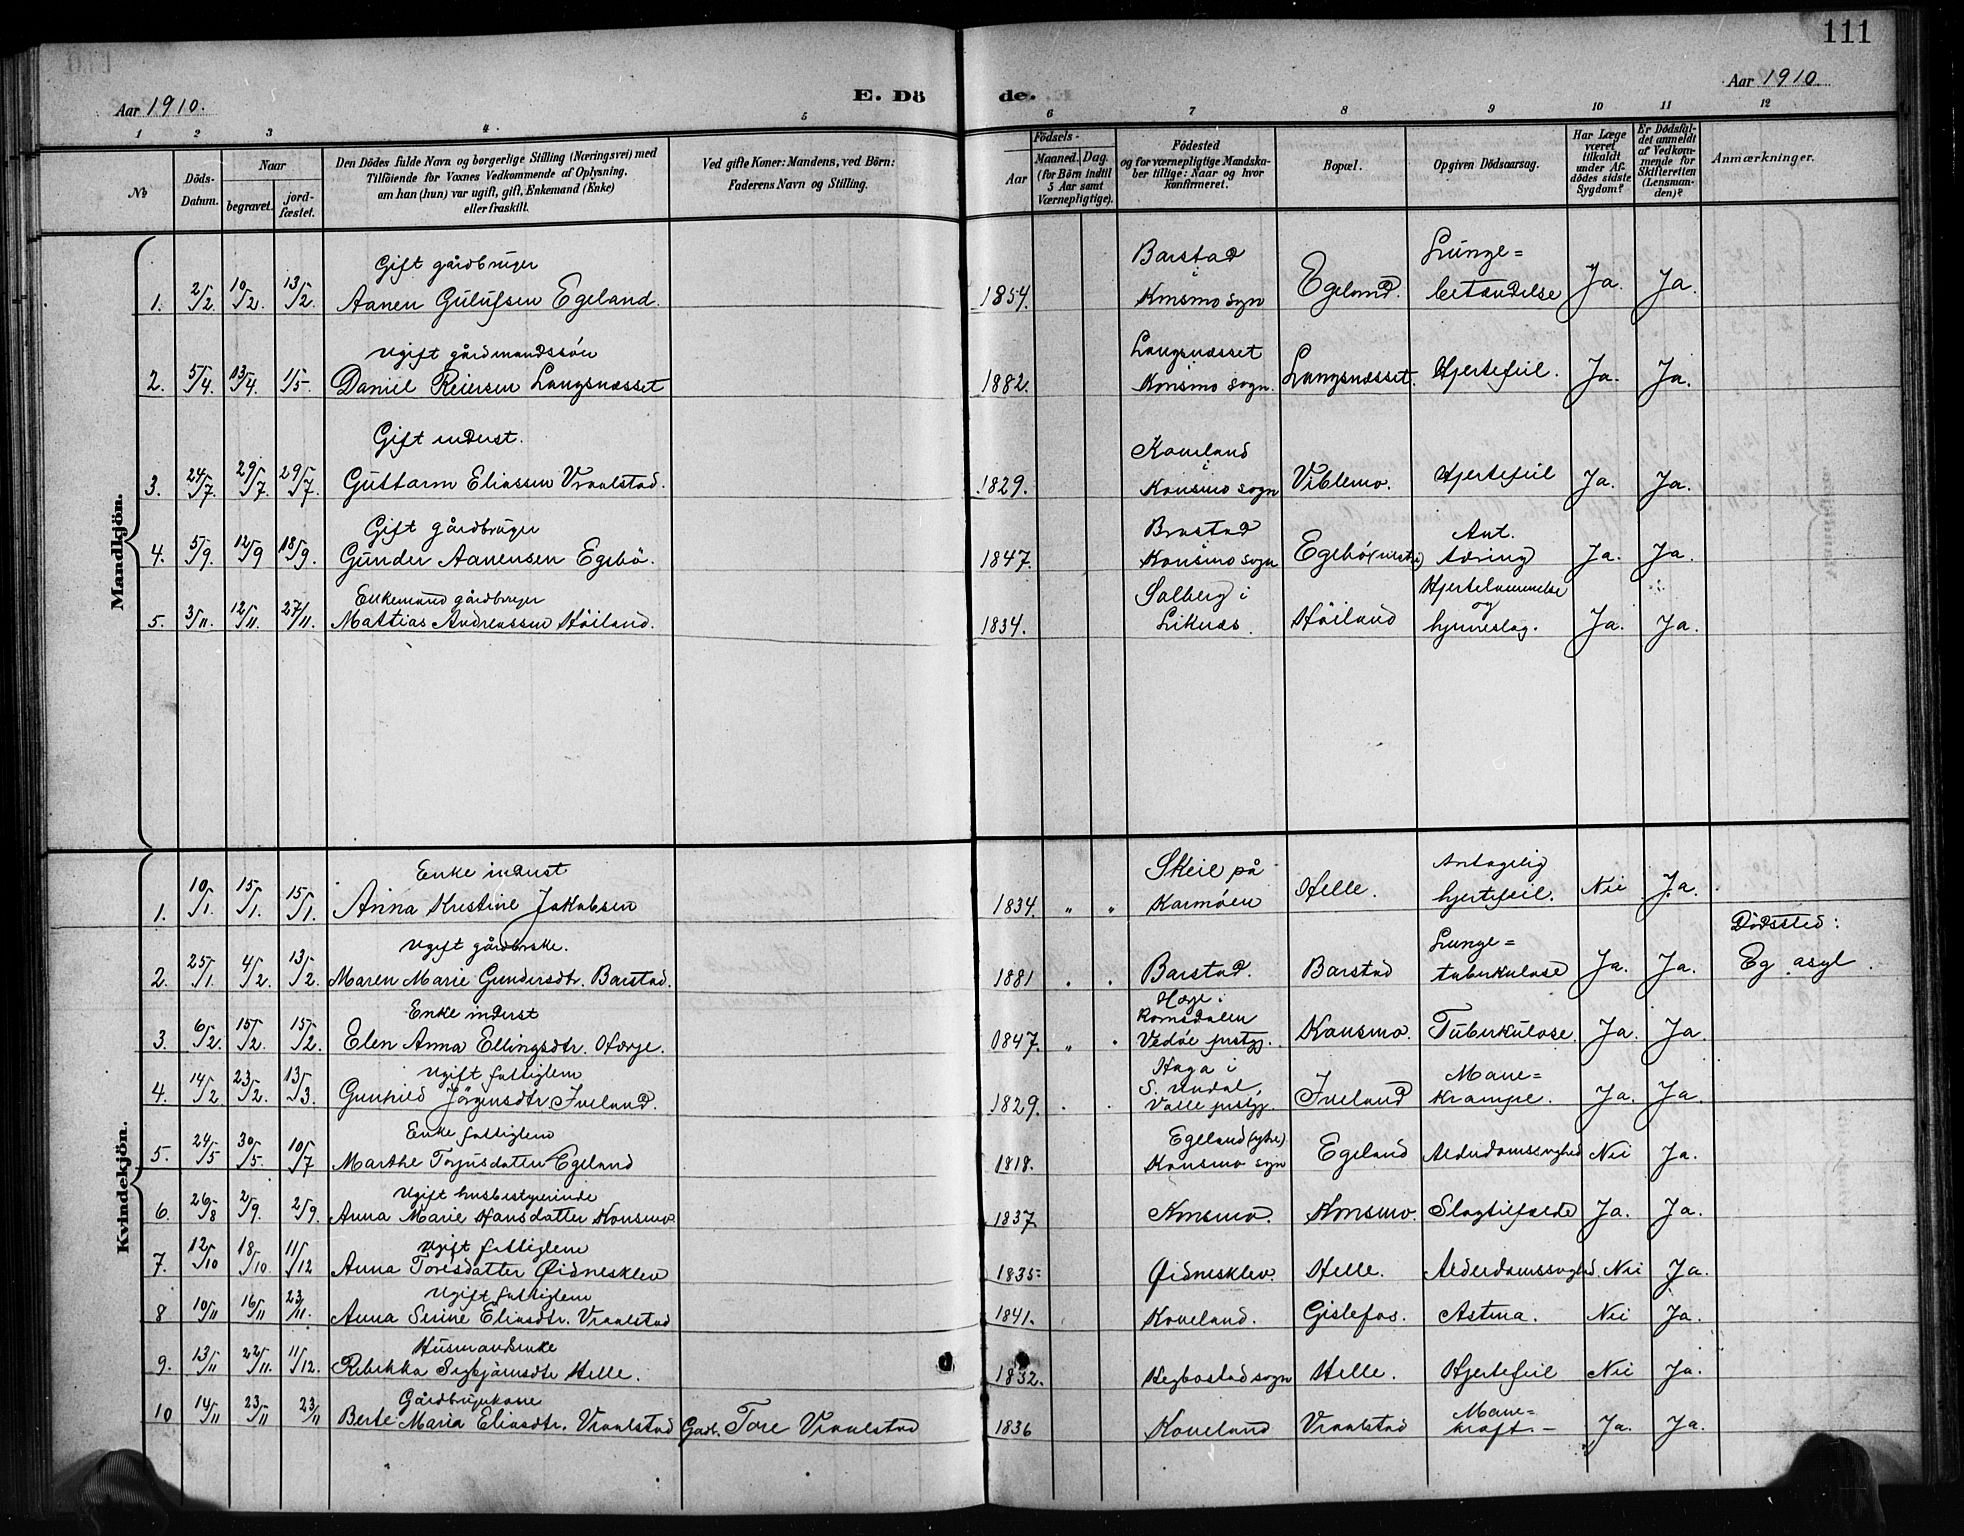 111
Aar 1910.
E. Dö
de.
Aar 1910.
1 2 3 4. 5 6 7 8 9 10 11 12
№
Döds-
Datum.
Naar
begravet.
jord-
fæstet.
Den Dödes fulde Navn og borgerlige Stilling (Næringsvei) med
Tilföiende for Voxnes Vedkommende af Oplysning,
om han (hun) var ugift, gift, Enkemand (Enke)
eller fraskilt.
Ved gifte Koner: Mandens, ved Börn:
Faderens Navn og Stilling.
Födsels-
Aar
Maaned. Dag.
(for Börn indtil
5 Aar samt
Værnepligtige).
Födested
og for værnepligtige Mandska-
ber tillige: Naar og hvor
konfirmeret.
Bopæl.
Opgiven Dödsaarsag.
Har Læge
været
tilkaldt
under Af-
dödes sidste
Sygdom?
Er Dödsfal-
det anmeldt
af Vedkom-
mende for
Skifteretten
(Lensman-
den)?
Anmærkninger.
Mandkjön.
Gift gårdbruger Barstad Lunge=
1. 2/2. 10/2. 13/2. Aanen Gulufsen Egeland. 1854. i Konsmo sogn Egeland. betændelse Ja. Ja.
Ugift gårdmandssön Langsnæsset
2. 5/4. 13/4. 1/5. Daniel Reiersen Langsnæsset 1882. Konsmo sogn. Langsnæsset. Hjertefeil. Ja. Ja.
Gift inderst. Koveland
3. 24/7. 29/7. 29/7. Guttorm Eliassen Vraalstad. 1829. i Konsmo sogn Viblemo. Hjertefeil Ja. Ja.
Gift gårdbruger Brastad Ant.
4. 5/9. 12/9 18/9. Gunder Aanensen Egebö. 1847. i Konsmo sogn Egebö tæring Ja. Ja.
Enkemand gårdbruger Solberg i Hjertelammelse
5. 3/11. 12/11. 27/11. Mattias Andreassen Höiland. 1834. Liknæs. Höiland og hjerneslag. Ja. Ja.
Kvindekjön.
Enke inderst Skeie på Antagelig
1. 10/1. 15/1. 15/1. Anna Kristine Jakobsen 1834. " " Karmöen Helle. hjertefeil. Nei Ja.
Ugift gårdbrske. Lunge= Dödssted:
2. 25/1. 4/2. 13/2. Maren Marie Gundersdtr. Barstad. 1881 Barstad. Barstad tuberkulose Ja. Ja. Eg asyl.
Enke inderst i Romsdalen
3. 6/2. 15/2. 15/2. Elen Anna Ellingsdtr. 1847. " Vedöe prstgj. Konsmo. Tuberkulose. Ja. Ja.
Ugift fattiglem Haga i S. Undal, Mave=
4. 14/2. 23/2. 13/3. Gunhild Jörgensdtr. Iveland. 1829. Valle prstgj. Iveland krampe. Ja. Ja
Enke fattiglem Egeland (ytre)
5. 24/5 30/5. 10/7 Marthe Torjusdatter Egeland 1818. Konsmo sogn Egeland Alderdomssvghed Nei Ja.
Ugift husbestyrerinde
6. 26/8 2/9. 2/9. Anna Marie Hansdatter Konsmo 1837. Konsmo. Konsmo. Slagtilfælde Ja. Ja.
Ugift fattiglem
7. 12/10 18/10. 11/12 Anna Toresdatter Øidnesklev 1835. Øidnesklev. Helle. Alderdomssvghed. Nei Ja.
Ugift fattiglem
8 10/11 16/11 23/11. Anna Serine Eliasdtr. Vraalstad 1841. Koveland. Gislefos. Astma. Nei Ja.
Husmandsenke
9. 13/11 22/11. 11/12. Rebekka Sigbjörnsdtr Helle. 1832. Hegbostad sogn Helle. Hjertefeil Nei Ja.
Gårdbrugerkone Mave=
10 14/11 23/11 23/11 Berte Maria Eliasdtr. Vraalstad Gadb. Tore Vraalstad 1836 Koveland Vraalstad kræft.- Ja. Ja.